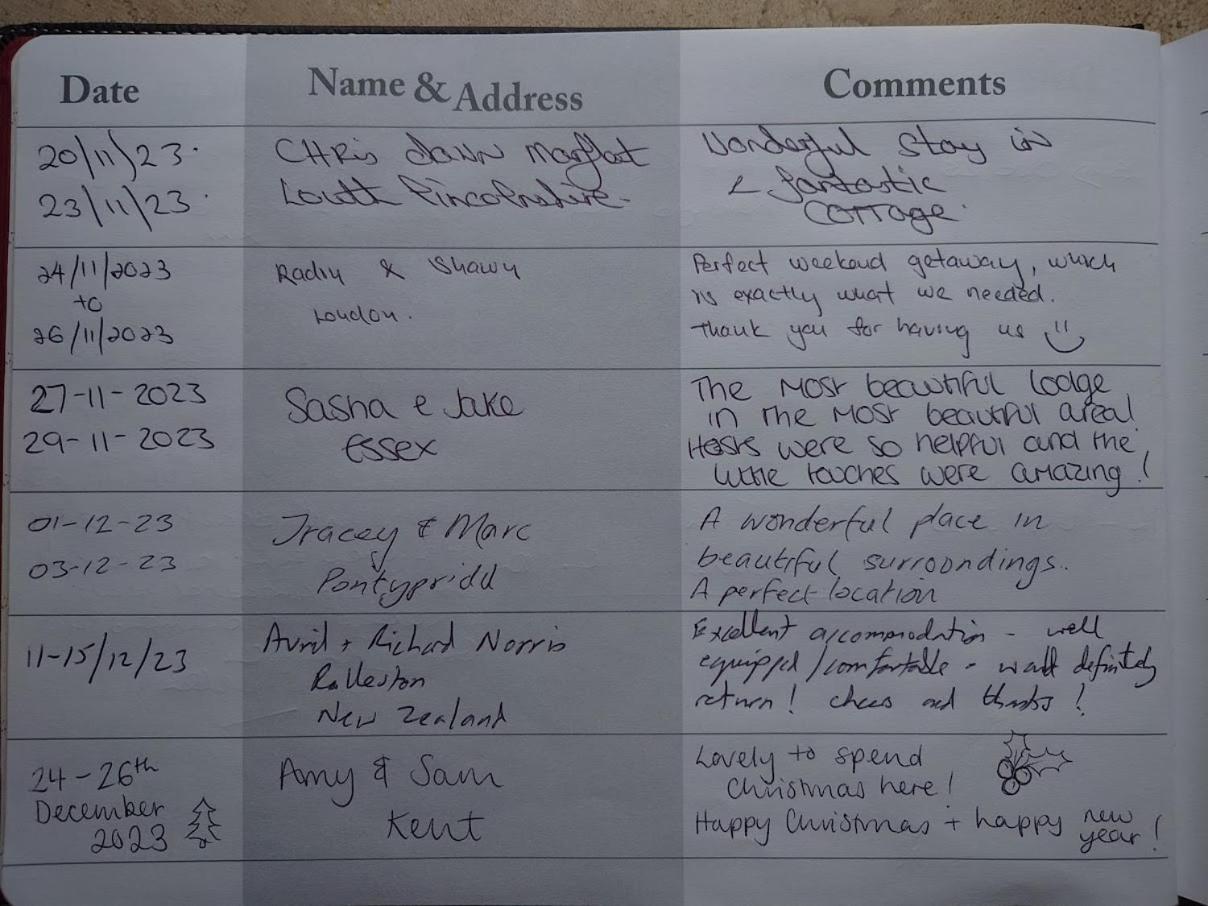 Date Name & Address Comments
20/11/23. CHRis DAWN Wonderful stay in
23/11/23. Louth Lincolnshire. & fantastic
COTTAGE.
24/11/2023 & Shawn Perfect weekend getaway, which
to London. is exactly what we needed.
26/11/2023 Thank you for having us
27-11-2023 Sasha e Jake The most beautiful lodge
29-11-2023 Essex in the most beautiful area!
Hosts were so helpful and the
little touches were amazing!
01-12-23 Tracey & Marc A wonderful place in
03-12-23 Pontypridd beautiful surroondings..
A perfect location
11-15/12/23 Avril + Richard Norris Excellent accommodation - well
Rolleston equipped/comfortable - would definitely
New Zealand return! cheers and thanks!
24-26th Amy & Sam Lovely to spend
December Kent Christmas here!
2023 Happy Christmas + happy new year!